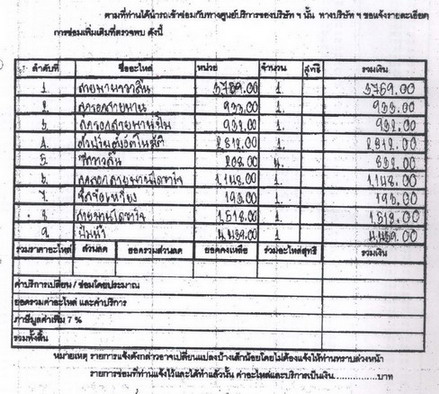 ตามที่ท่านได้นำรถเข้าซ่อมกับทางศูนย์บริการของบริษัท ฯ นั้น ทางบริษัท ฯ ขอแจ้งรายละเอียด
การซ่อมเพิ่มเติมที่ตรวจพบ ดังนี้
ลำดับที่ ชื่ออะไหล่ หน่วย จำนวน สุทธิ รวมเงิน
1. สายพานวาลิ้น 3769.00 1. 3769.00
2. ลูกรอกสายพาน 933.00 1. 933.00
3. ลูกรอกสายพาน 1.
4. 2812.00 1. 2812.00
5. ซีลวาล์ว 208.00 4. 832.00
6. ลูกรอกสายพาน 1,148.00 1. 1,148.00
7. ซีลข้อเหวี่ยง 193.00 1. 193.00
8. สายพานไดชาร์จ 1,518.00 1. 1,518.00
9. ปั๊มน้ำ 4,439.00 1. 4,439.00
รวมราคาอะไหล่ ส่วนลด ยอดรวมส่วนลด ยอดคงเหลือ รวมอะไหล่สุทธิ รวมเงิน
ค่าบริการเปลี่ยน / ซ่อมโดยประมาณ
ยอดรวมค่าอะไหล่ และค่าบริการ
ภาษีมูลค่าเพิ่ม 7 %
รวมทั้งสิ้น
หมายเหตุ รายการแจ้งดังกล่าวอาจเปลี่ยนแปลงบ้างเล็กน้อยโดยไม่ต้องแจ้งให้ท่านทราบล่วงหน้า
รายการซ่อมที่ท่านแจ้งไว้และได้ทำแล้วนั้น ค่าอะไหล่และบริการเป็นเงิน..................บาท